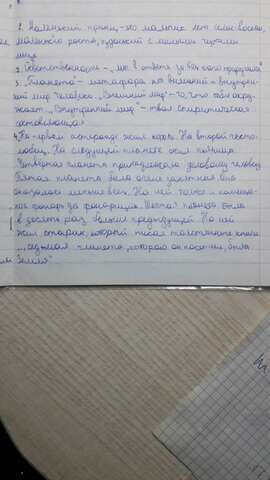 1. Маленький принц - это мальчик лет семи-восьми,
маленького роста, худенький с милыми чертами
лица.
2. Ответственность - "мы в ответе за тех кого приручили"
3. "Планета" - метафора на внешний и внутрен-
ний мир человека. "Внешний мир" - то, что тебя окру-
жает. "Внутренний мир" - твоя
составляющая.
4. На первом астероиде жил король. На второй често-
любец. На следующей планете жил пьяница.
Четвёртая планета принадлежала деловому человеку
Пятая планета была очень занятная, она
оказалась меньше всех. На ней только и помеща-
лось фонарь да фонарщик. Шестая планета была
в десять раз больше предыдущей. На ней
жил старик, который писал толстенные книги
"... седьмая планета, которую он посетил, была
Земля"